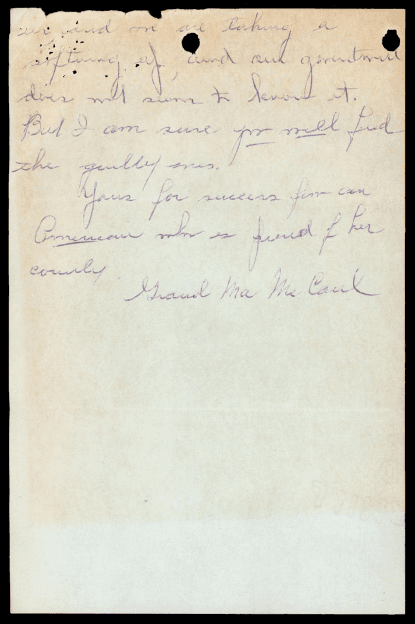 and we are taking a
of, and our government
does not seem to know it.
But I am sure you will find
the guilty ones.
Yours for success from an
American who is proud of her
country
Grand Ma McCaul